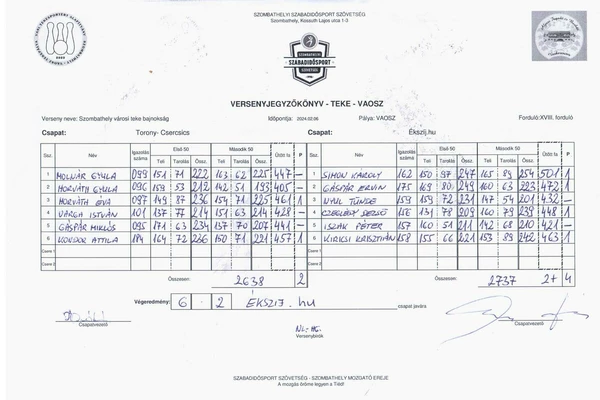 SZOMBATHELYI SZABADIDŐSPORT SZÖVETSÉG
Szombathely, Kossuth Lajos utca 1-3
SZOMBATHELYI
SZABADIDŐSPORT
SZÖVETSÉG
VERSENYJEGYZŐKÖNYV - TEKE - VAOSZ
Verseny neve: Szombathely városi teke bajnokság Időpontja: 2024.02.06 Pálya: VAOSZ Forduló: XVIII. forduló
Csapat: Torony- Csercsics Csapat: Ékszij.hu
Ssz. Név Igazolás száma Első 50 Második 50 Ütött fa P Ssz. Név Igazolás száma Első 50 Második 50 Ütött fa P
Teli Tarolás Össz. Teli Tarolás Össz. Teli Tarolás Össz. Teli Tarolás Össz.
1 MOLNÁR GYULA 099 151 71 222 163 62 225 447 - 1 SIMON KÁROLY 162 150 97 247 165 89 254 501 1
2 HORVÁTH GYULA 096 159 53 212 142 51 193 405 - 2 GÁSPÁR ERVIN 175 169 80 249 160 63 223 472 1
3 HORVÁTH ÉVA 097 149 87 236 154 71 225 461 1 3 NYUL TÜNDE 159 159 72 231 147 54 201 432 -
4 VARGA ISTVÁN 101 137 77 214 151 63 214 428 - 4 CZEGLÉDY 156 131 78 209 160 79 239 448 1
5 GÁSPÁR MIKLÓS 095 171 63 234 137 70 207 441 - 5 ISZAK PÉTER 157 160 51 211 142 68 210 421 -
6 ATTILA 184 164 72 236 150 71 221 457 1 6 KIRICSI KRISZTIÁN 158 155 66 221 153 89 242 463 1
Csere 1 Csere 1
Csere 2 Csere 2
Összesen: 2638 2 Összesen: 2737 2+4
Végeredmény: 6 - 2 ÉKSZIJ.hu csapat javára
Csapatvezető Csapatvezető
Versenybírók
SZOMBATHELYI SZABADIDŐSPORT SZÖVETSÉG - SZOMBATHELY MOZGATÓ EREJE
A mozgás öröme legyen a Tiéd!